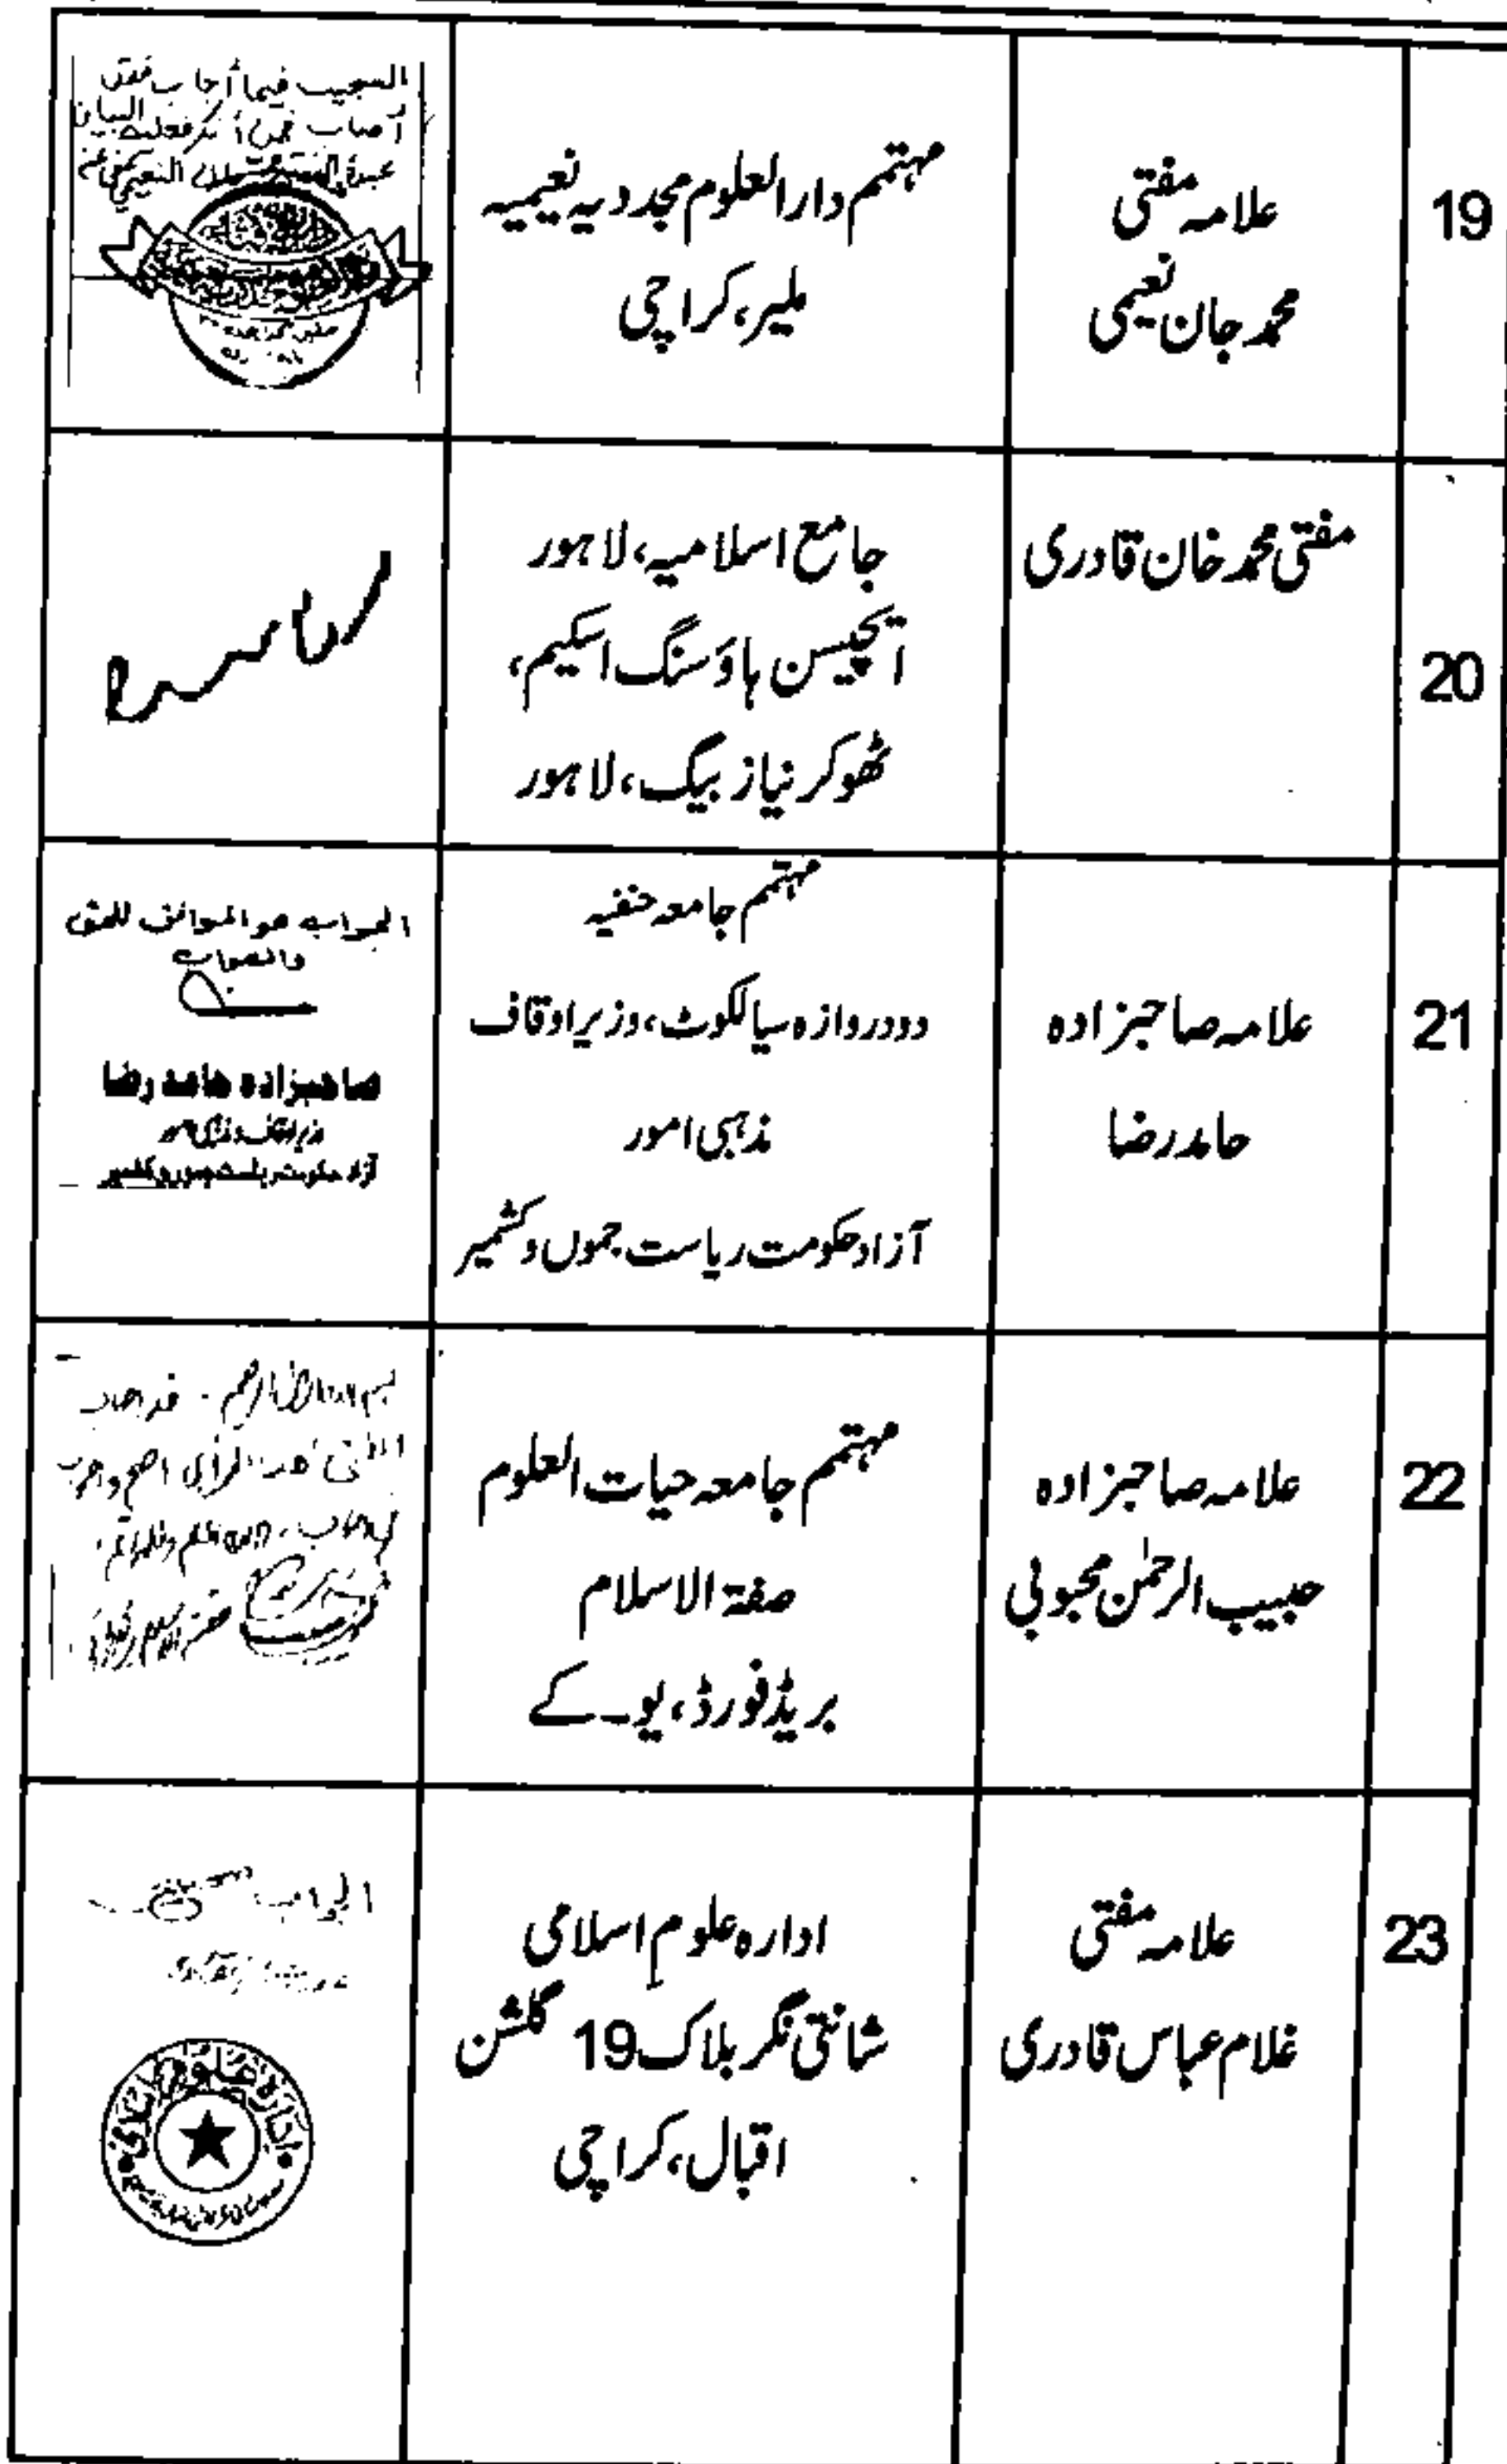 19
علامہ مفتی
محمد جان نعیمی
مہتمم دارالعلوم مجددیہ نعیمیہ
ملیر، کراچی
20
مفتی محمد خان قادری
جامع اسلامیہ، لاہور
ایچیسن ہاؤسنگ اسکیم،
ٹھوکر نیاز بیگ، لاہور
21
علامہ صاحبزادہ
حامد رضا
مہتمم جامعہ حنفیہ
دودروازہ سیالکوٹ، وزیر اوقاف
مذہبی امور
آزاد حکومت ریاست جموں و کشمیر
الجواب هو الموافق للحق
والصواب
صاحبزادہ حامد رضا
آزاد حکومت ریاست جموں و کشمیر
22
علامہ صاحبزادہ
حبیب الرحمٰن محبوبی
مہتمم جامعہ حیات العلوم
صفۃ الاسلام
بریڈفورڈ، یو۔کے
23
علامہ مفتی
غلام عباس قادری
ادارہ علوم اسلامی
شانتی نگر بلاک 19 گلشن
اقبال، کراچی